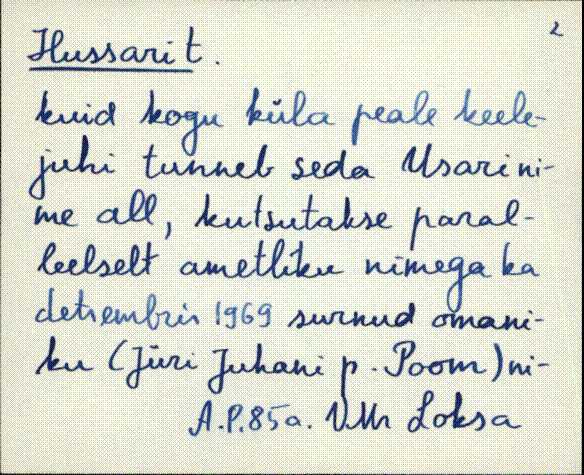 2
Hussari t.
kuid kogu küla peale keele-
juhi tunneb seda Usari ni-
me all, kutsutakse paral-
leelselt ametliku nimega ka
detsembris 1969 surnud omani-
ku (Jüri Juhani p. Poom) ni-
A.P. 85 a. VMr Loksa